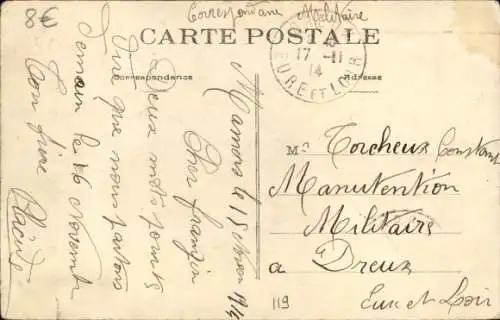 8€
Correspondance Militaire
CARTE POSTALE
17 -11
14
EURE ET LOIR
Correspondance
Adresse
Mamers le 15 9bre 1914
Cher frangin
Deux mots pour te
dire que nous partons
demain le 16 Novembre
Ton frère
Placide
M. Torcheux Constant
Manutention
Militaire
a Dreux
Eure et Loir
119